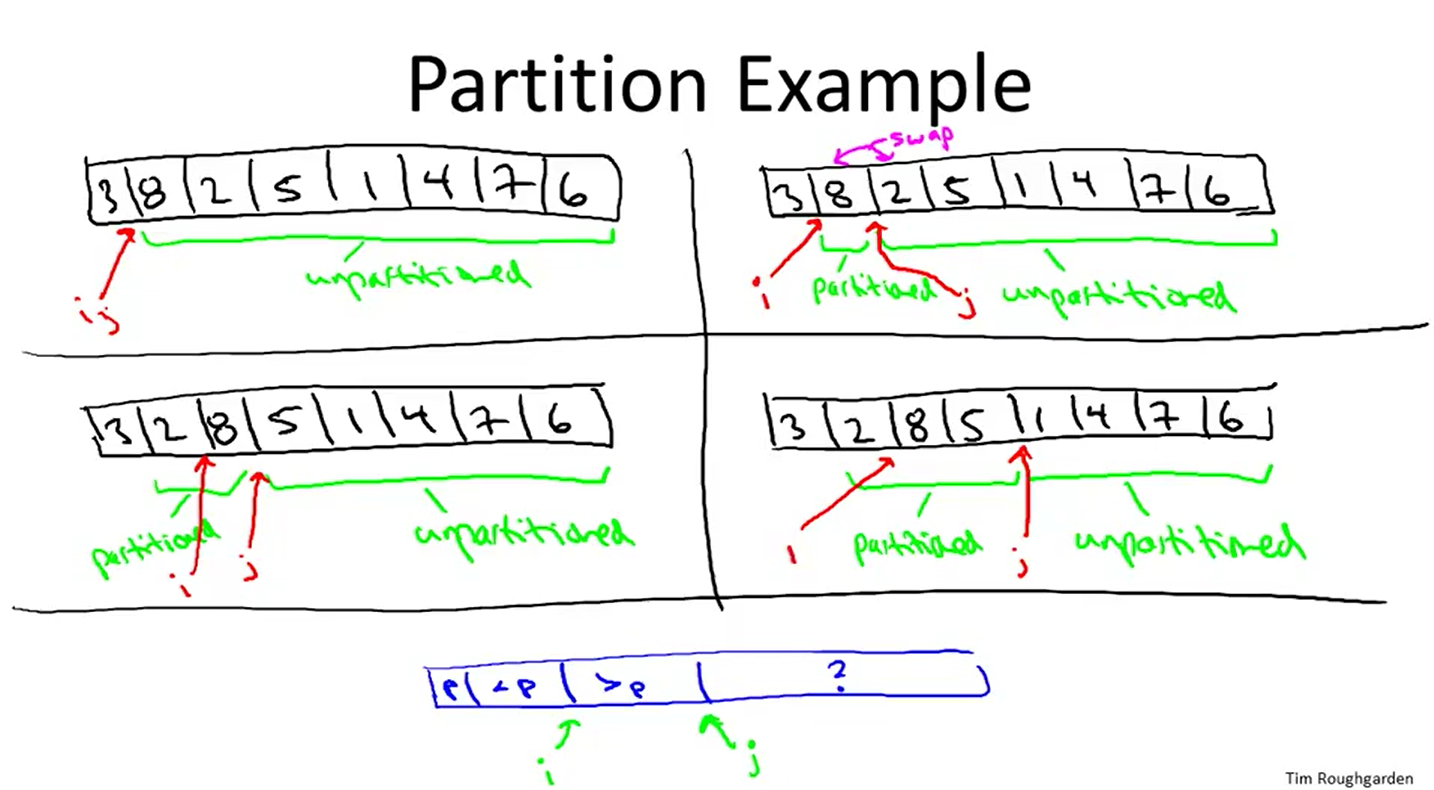 Partition Example
swap
3 8 2 5 1 4 7 6
unpartitioned
i j
3 8 2 5 1 4 7 6
i partitioned j unpartitioned
3 2 8 5 1 4 7 6
partitioned unpartitioned
i j
3 2 8 5 1 4 7 6
i partitioned j unpartitioned
p <p >p ?
i j
Tim Roughgarden